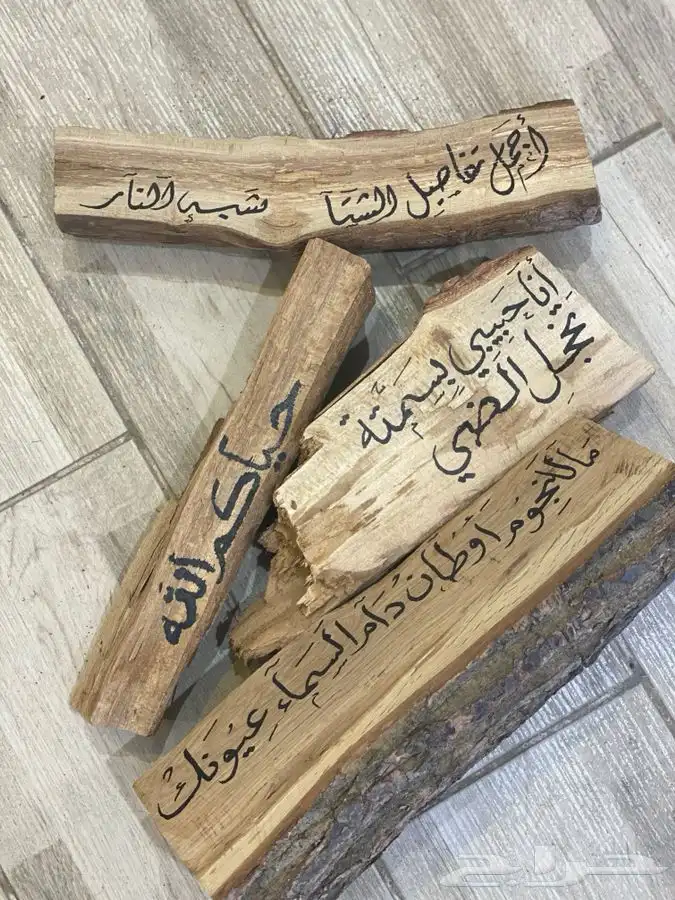 أجمل تفاصيل الشتا شبه النار
أنا حبيبي بسمته
تخجل الضي
حياكم الله
ما للنجوم اوطان دام السماء عيونك
حراج